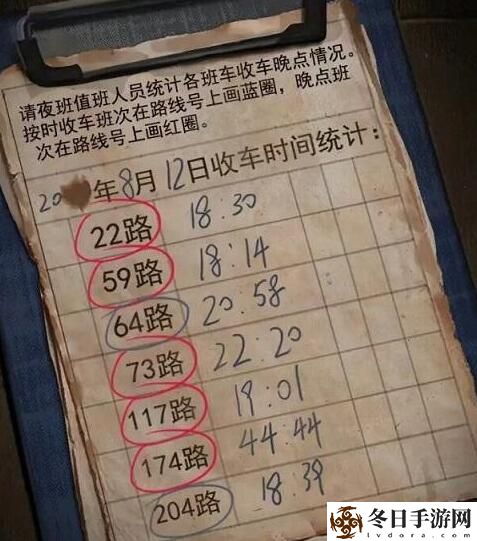 请夜班值班人员统计各班车收车晚点情况。
按时收车班次在路线号上画蓝圈，晚点班
次在路线号上画红圈。
20 年8月12日收车时间统计：
22路 18:30
59路 18:14
64路 20:58
73路 22:20
117路 19:01
174路 44:44
204路 18:39
冬日手游网
lvdora.com